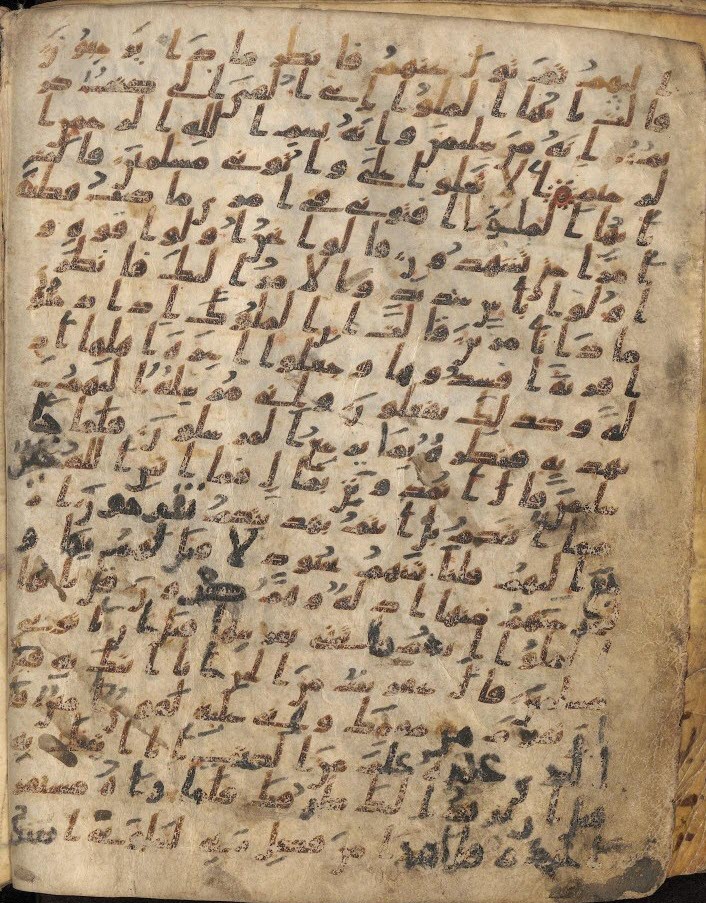 اليهم ثم تول عنهم فانظر ما ذا يرجعون
قالت يايها الملوا اني القي الي كتب كر
يم انه من سليمن وانه بسم الله الرحمن ا
لرحيم الا تعلوا علي واتوني مسلمين قالت
يايها الملوا افتوني في امري ما كنت قطعة
امرا حتى تشهدون قالوا نحن اولوا قوة و
اولوا باس شديد والامر اليك فانظري
ماذا تامرين قالت ان الملوك اذا دخلو
ا قرية افسدوها وجعلوا اعزة اهلها اذ
لة وكذلك يفعلون واني مرسلة اليهم
بهدية فنظرة بم يرجع المرسلون فلما جا
سليمن قال اتمدونن بمال فما اتين الله خير
مما اتيكم بل انتم بهديتكم تفرحون ار
جع اليهم فلناتينهم بجنود لا قبل لهم بها و
لنخرجنهم منها اذلة وهم صغرون قال يا
يها الملوا ايكم ياتيني بعرشها قبل ان ياتوني
مسلمين قال عفريت من الجن انا اتيك به قبل
ان تقوم من مقمك واني عليه لقوي امين قا
ل الذي عنده علم من الكتب انا اتيك به
قبل ان يرتد اليك طرفك فلما راه مستقر
ا عنده قال هذا من فضل ربي ليبلوني ا شكر